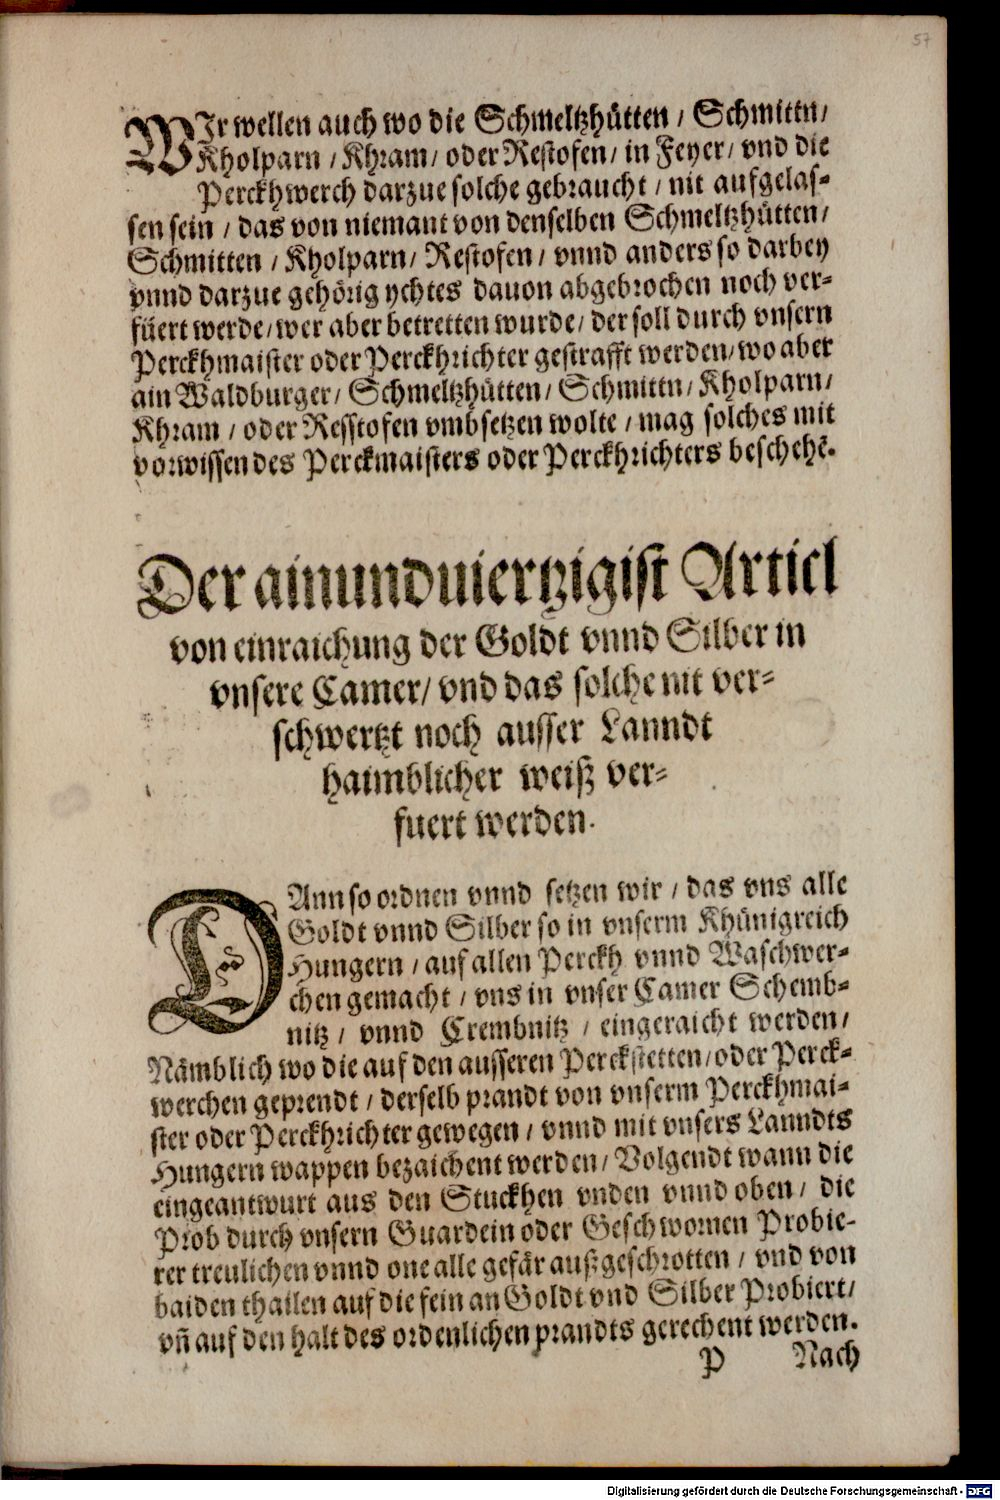 57
WIr wellen auch wo die Schmeltzhütten / Schmittn /
Kholparn / Khram / oder Restofen / in Feyer / vnd die
Perckhwerch darzue solche gebraucht / nit aufgelas-
sen sein / das von niemant von denselben Schmeltzhütten /
Schmitten / Kholparn / Restofen / vnnd anders so darbey
vnnd darzue gehörig ychtes dauon abgebrochen noch ver-
füert werde / wer aber betretten wurde / der soll durch vnsern
Perckhmaister oder Perckhrichter gestrafft werden / wo aber
ain Waldburger / Schmeltzhütten / Schmittn / Kholparn /
Khram / oder Resstofen vmbsetzen wolte / mag solches mit
vorwissen des Perckmaisters oder Perckhrichters beschehẽ.
Der ainundviertzigist Articl
von einraichung der Goldt vnnd Silber in
vnsere Camer / vnd das solche nit ver-
schwertzt noch ausser Lanndt
haimblicher weiß ver-
fuert werden.
DAnn so ordnen vnnd setzen wir / das vns alle
Goldt vnnd Silber so in vnserm Khünigreich
Hungern / auf allen Perckh vnnd Waschwer-
chen gemacht / vns in vnser Camer Schemb-
nitz / vnnd Crembnitz / eingeraicht werden /
Nämblich wo die auf den ausseren Perckstetten / oder Perck-
werchen geprendt / derselb prandt von vnserm Perckhmai-
ster oder Perckhrichter gewegen / vnnd mit vnsers Lanndts
Hungern wappen bezaichent werden / Volgendt wann die
eingeantwurt aus den Stuckhen vnden vnnd oben / die
Prob durch vnsern Guardein oder Geschwornen Probie-
rer treulichen vnnd one alle gefär außgeschrotten / vnd von
baiden thailen auf die fein an Goldt vnd Silber Probiert /
vñ auf den halt des ordenlichen prandts gerechent werden.
P Nach
Digitalisierung gefördert durch die Deutsche Forschungsgemeinschaft - DFG